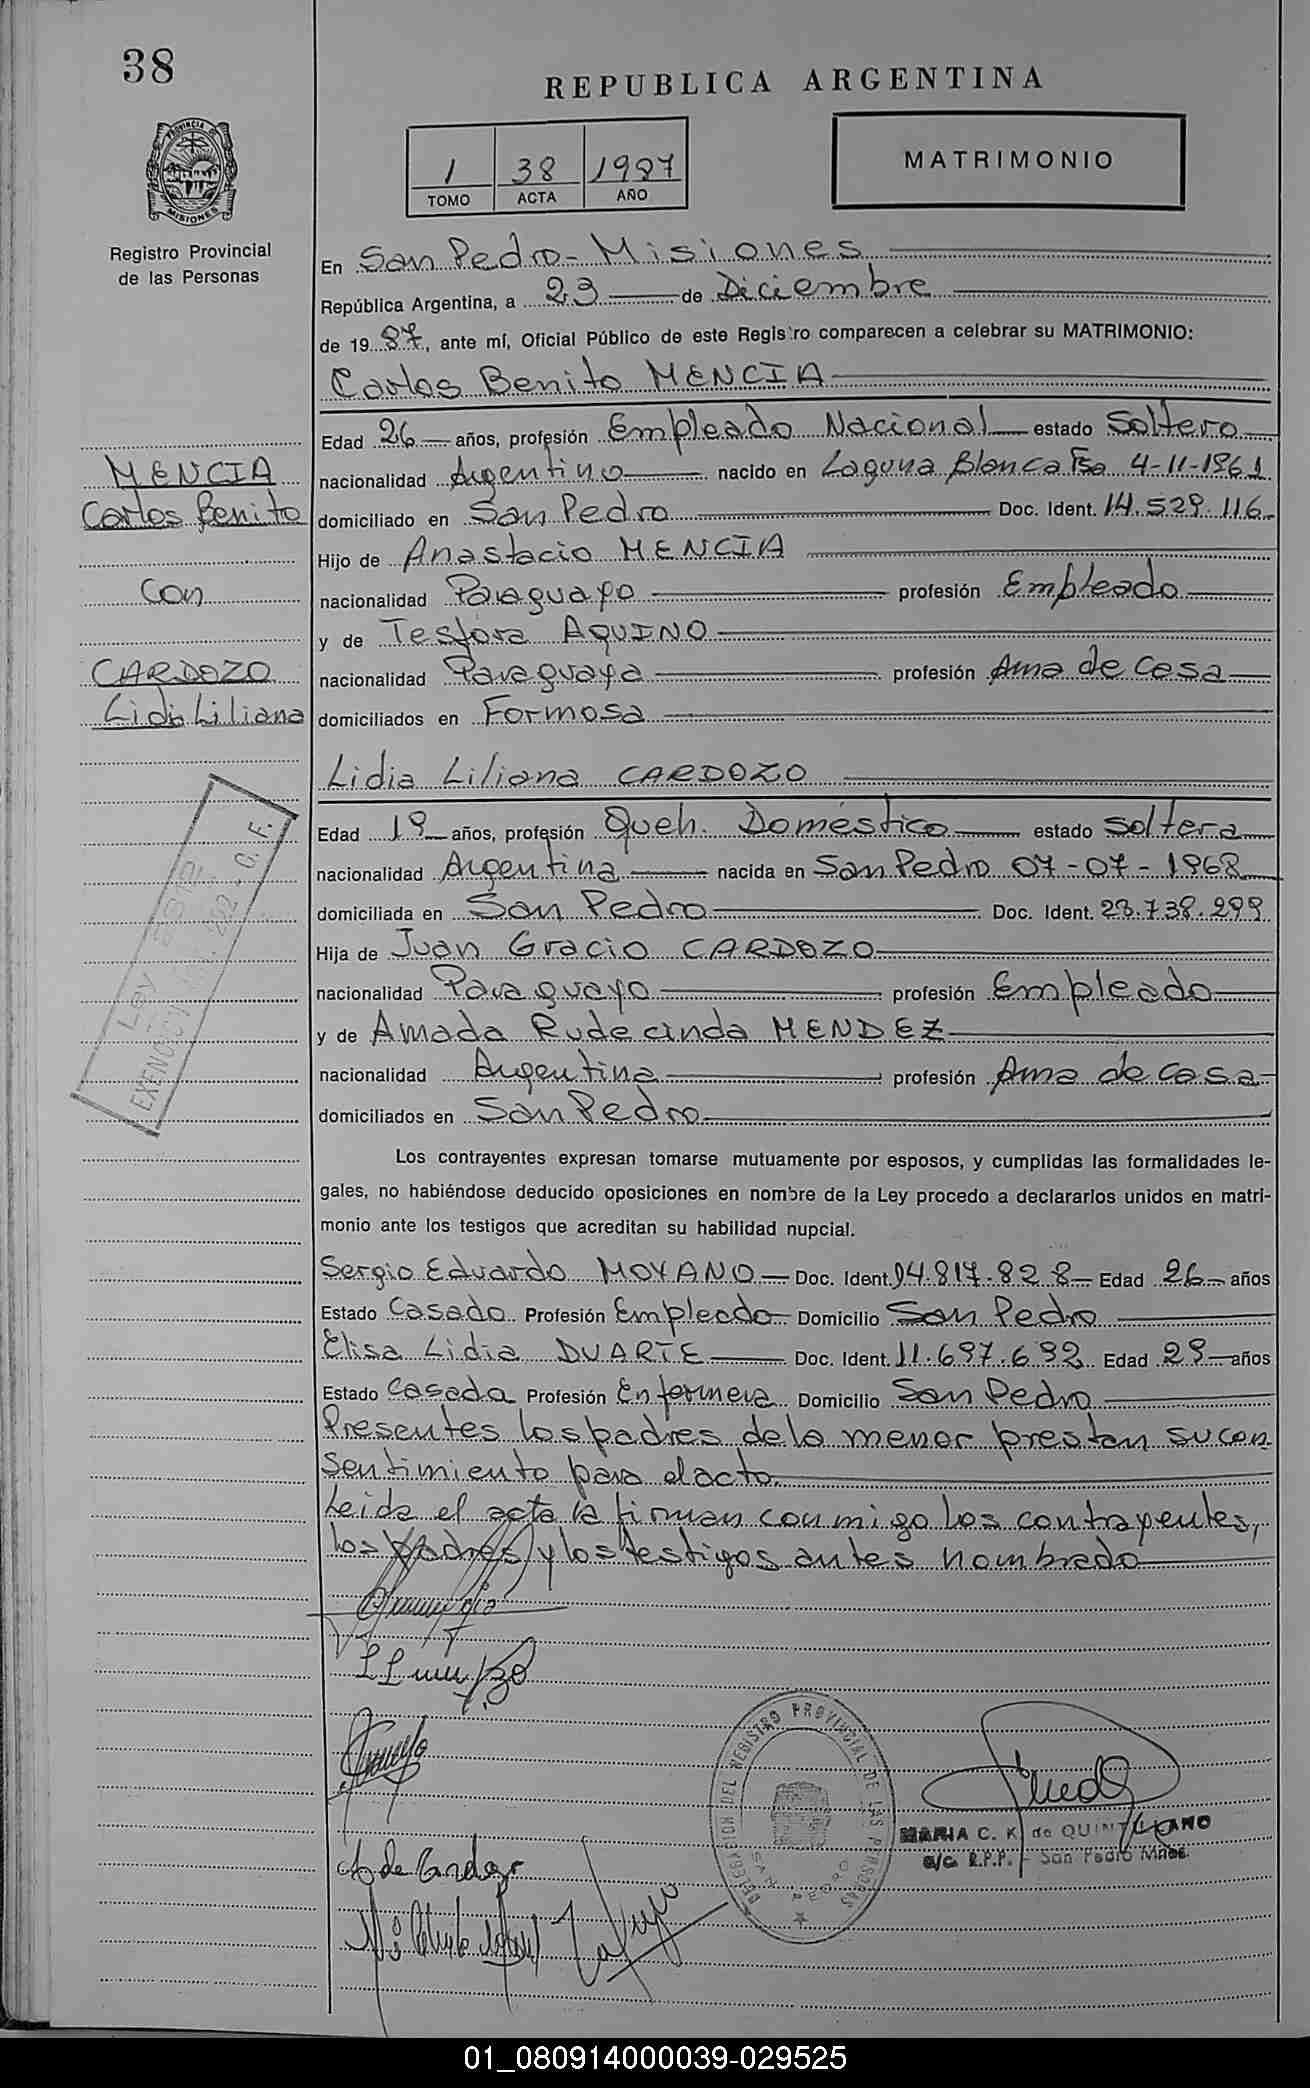 38
REPUBLICA ARGENTINA
PROVINCIA DE
MISIONES
1 38 1987
TOMO ACTA AÑO
MATRIMONIO
Registro Provincial
de las Personas
En San Pedro - Misiones
República Argentina, a 23 de Diciembre
de 19 87, ante mí, Oficial Público de este Registro comparecen a celebrar su MATRIMONIO:
Carlos Benito MENCIA
Edad 26 años, profesión Empleado Nacional estado Soltero
MENCIA
nacionalidad Argentino nacido en Laguna Blanca Fsa 4-11-1961
Carlos Benito
domiciliado en San Pedro Doc. Ident. 14.529.116
Hijo de Anastacio MENCIA
con
nacionalidad Paraguayo profesión Empleado
y de Tesfora AQUINO
CARDOZO
nacionalidad Paraguaya profesión Ama de Casa
Lidia Liliana
domiciliados en Formosa
Lidia Liliana CARDOZO
Edad 19 años, profesión Queh. Doméstico estado Soltera
nacionalidad Argentina nacida en San Pedro 07-07-1968
domiciliada en San Pedro Doc. Ident. 23.738.299
Hija de Juan Gracio CARDOZO
nacionalidad Paraguayo profesión Empleado
y de Amada Rudecinda MENDEZ
nacionalidad Argentina profesión Ama de casa
domiciliados en San Pedro
Ley
Los contrayentes expresan tomarse mutuamente por esposos, y cumplidas las formalidades le-
gales, no habiéndose deducido oposiciones en nombre de la Ley procedo a declararlos unidos en matri-
monio ante los testigos que acreditan su habilidad nupcial.
Sergio Eduardo MOYANO Doc. Ident. 14.817.828 Edad 26 años
Estado Casado Profesión Empleado Domicilio San Pedro
Elisa Lidia DUARTE Doc. Ident. 11.697.692 Edad 29 años
Estado Casada Profesión Enfermera Domicilio San Pedro
Presentes los padres de la menor prestan su con
sentimiento para el acto.
Leida el acta la firman conmigo los contrayentes,
los padres y los testigos antes nombrado
A de Cardozo
DELEGACION DEL REGISTRO PROVINCIAL DE LAS PERSONAS
SAN PEDRO
MARIA C. K. de QUINTILIANO
a/c. R.P.P. - San Pedro Mnes.
01_080914000039-029525